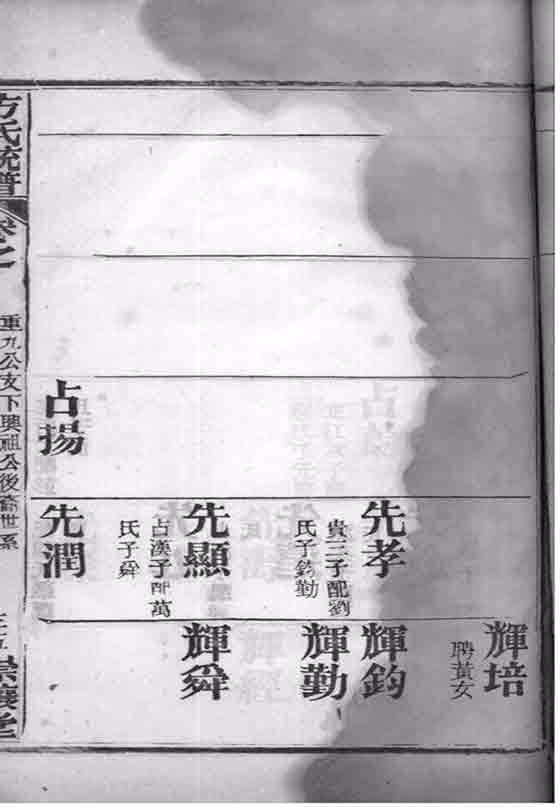 輝培
聘黃女
先孝
貴三子配劉
氏子鈞勤
輝鈞
輝勤
先顯
占漢子配萬
氏子舜
輝舜
占揚
先潤
方氏統譜
卷之一
重九公支下興祖公後裔世系
崇讓堂